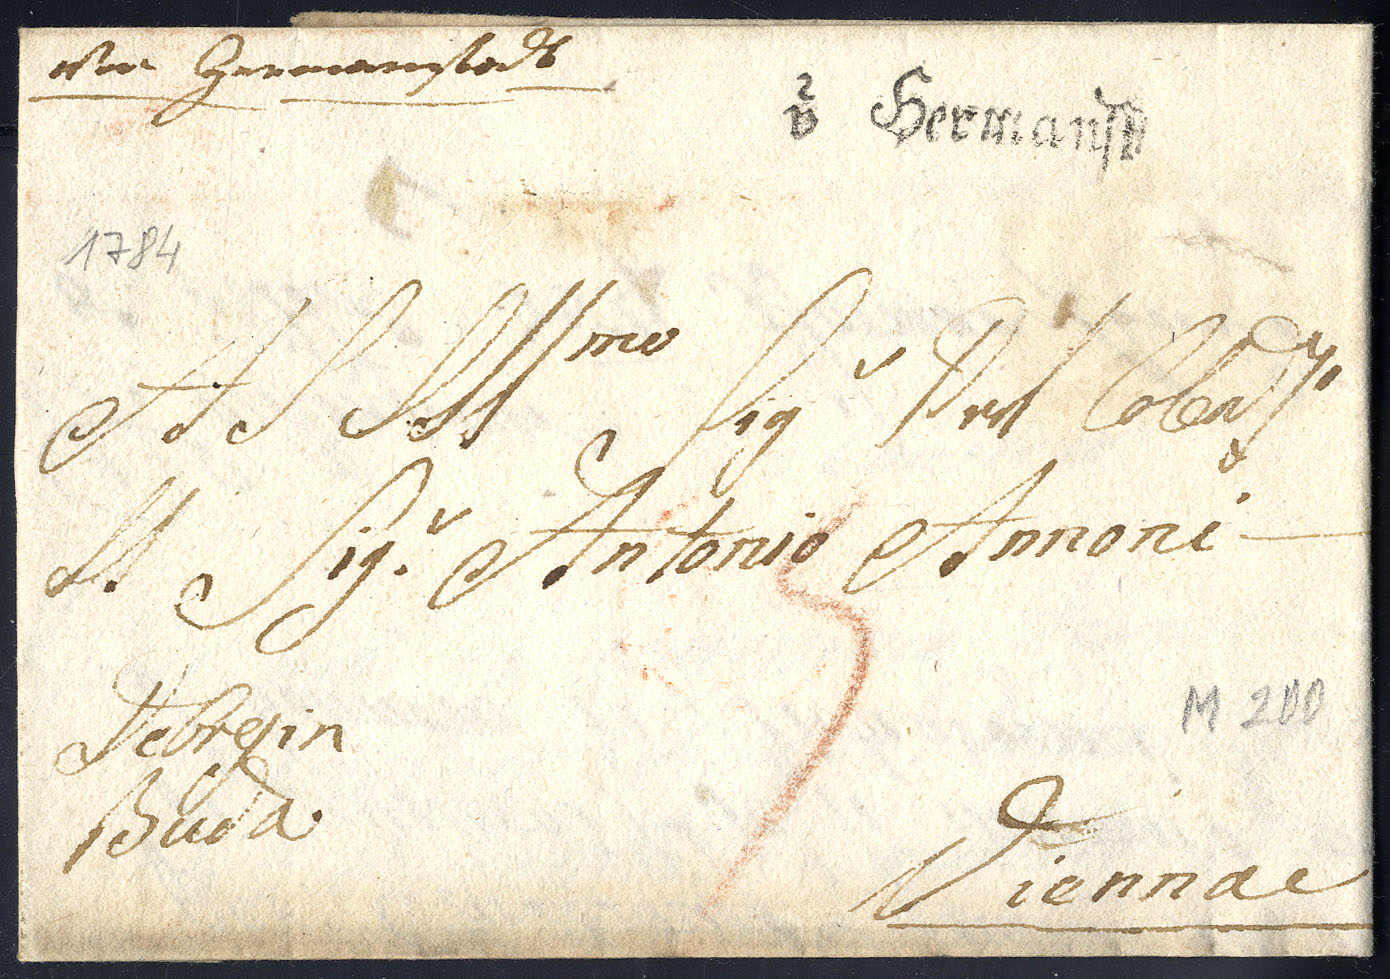 Hermanstadt
v Hermanst
1784
Al S Illmo Sigr
Il Sigr. Antonio Annoni
3
Debrezin
Buda.
M 200
Viennae